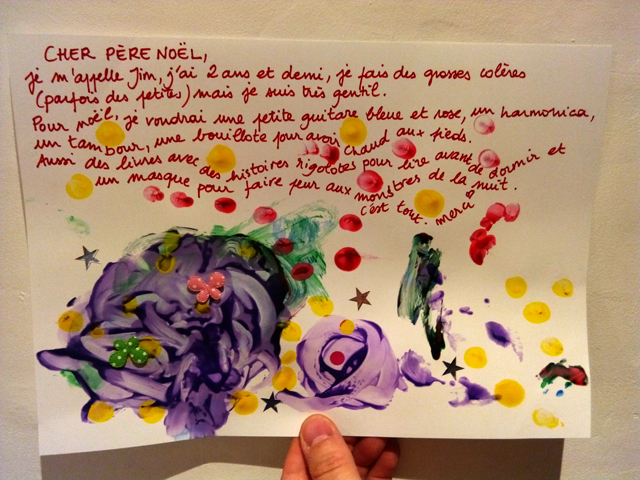 CHER PÈRE NOËL,
je m'appelle Jim, j'ai 2 ans et demi, je fais des grosses colères
(parfois des petites) mais je suis très gentil.
Pour noël, je voudrai une petite guitare bleue et rose, un harmonica,
un tambour, une bouillote pour avoir chaud aux pieds.
Aussi des livres avec des histoires rigolotes pour lire avant de dormir et
un masque pour faire peur aux monstres de la nuit.
c'est tout. merci